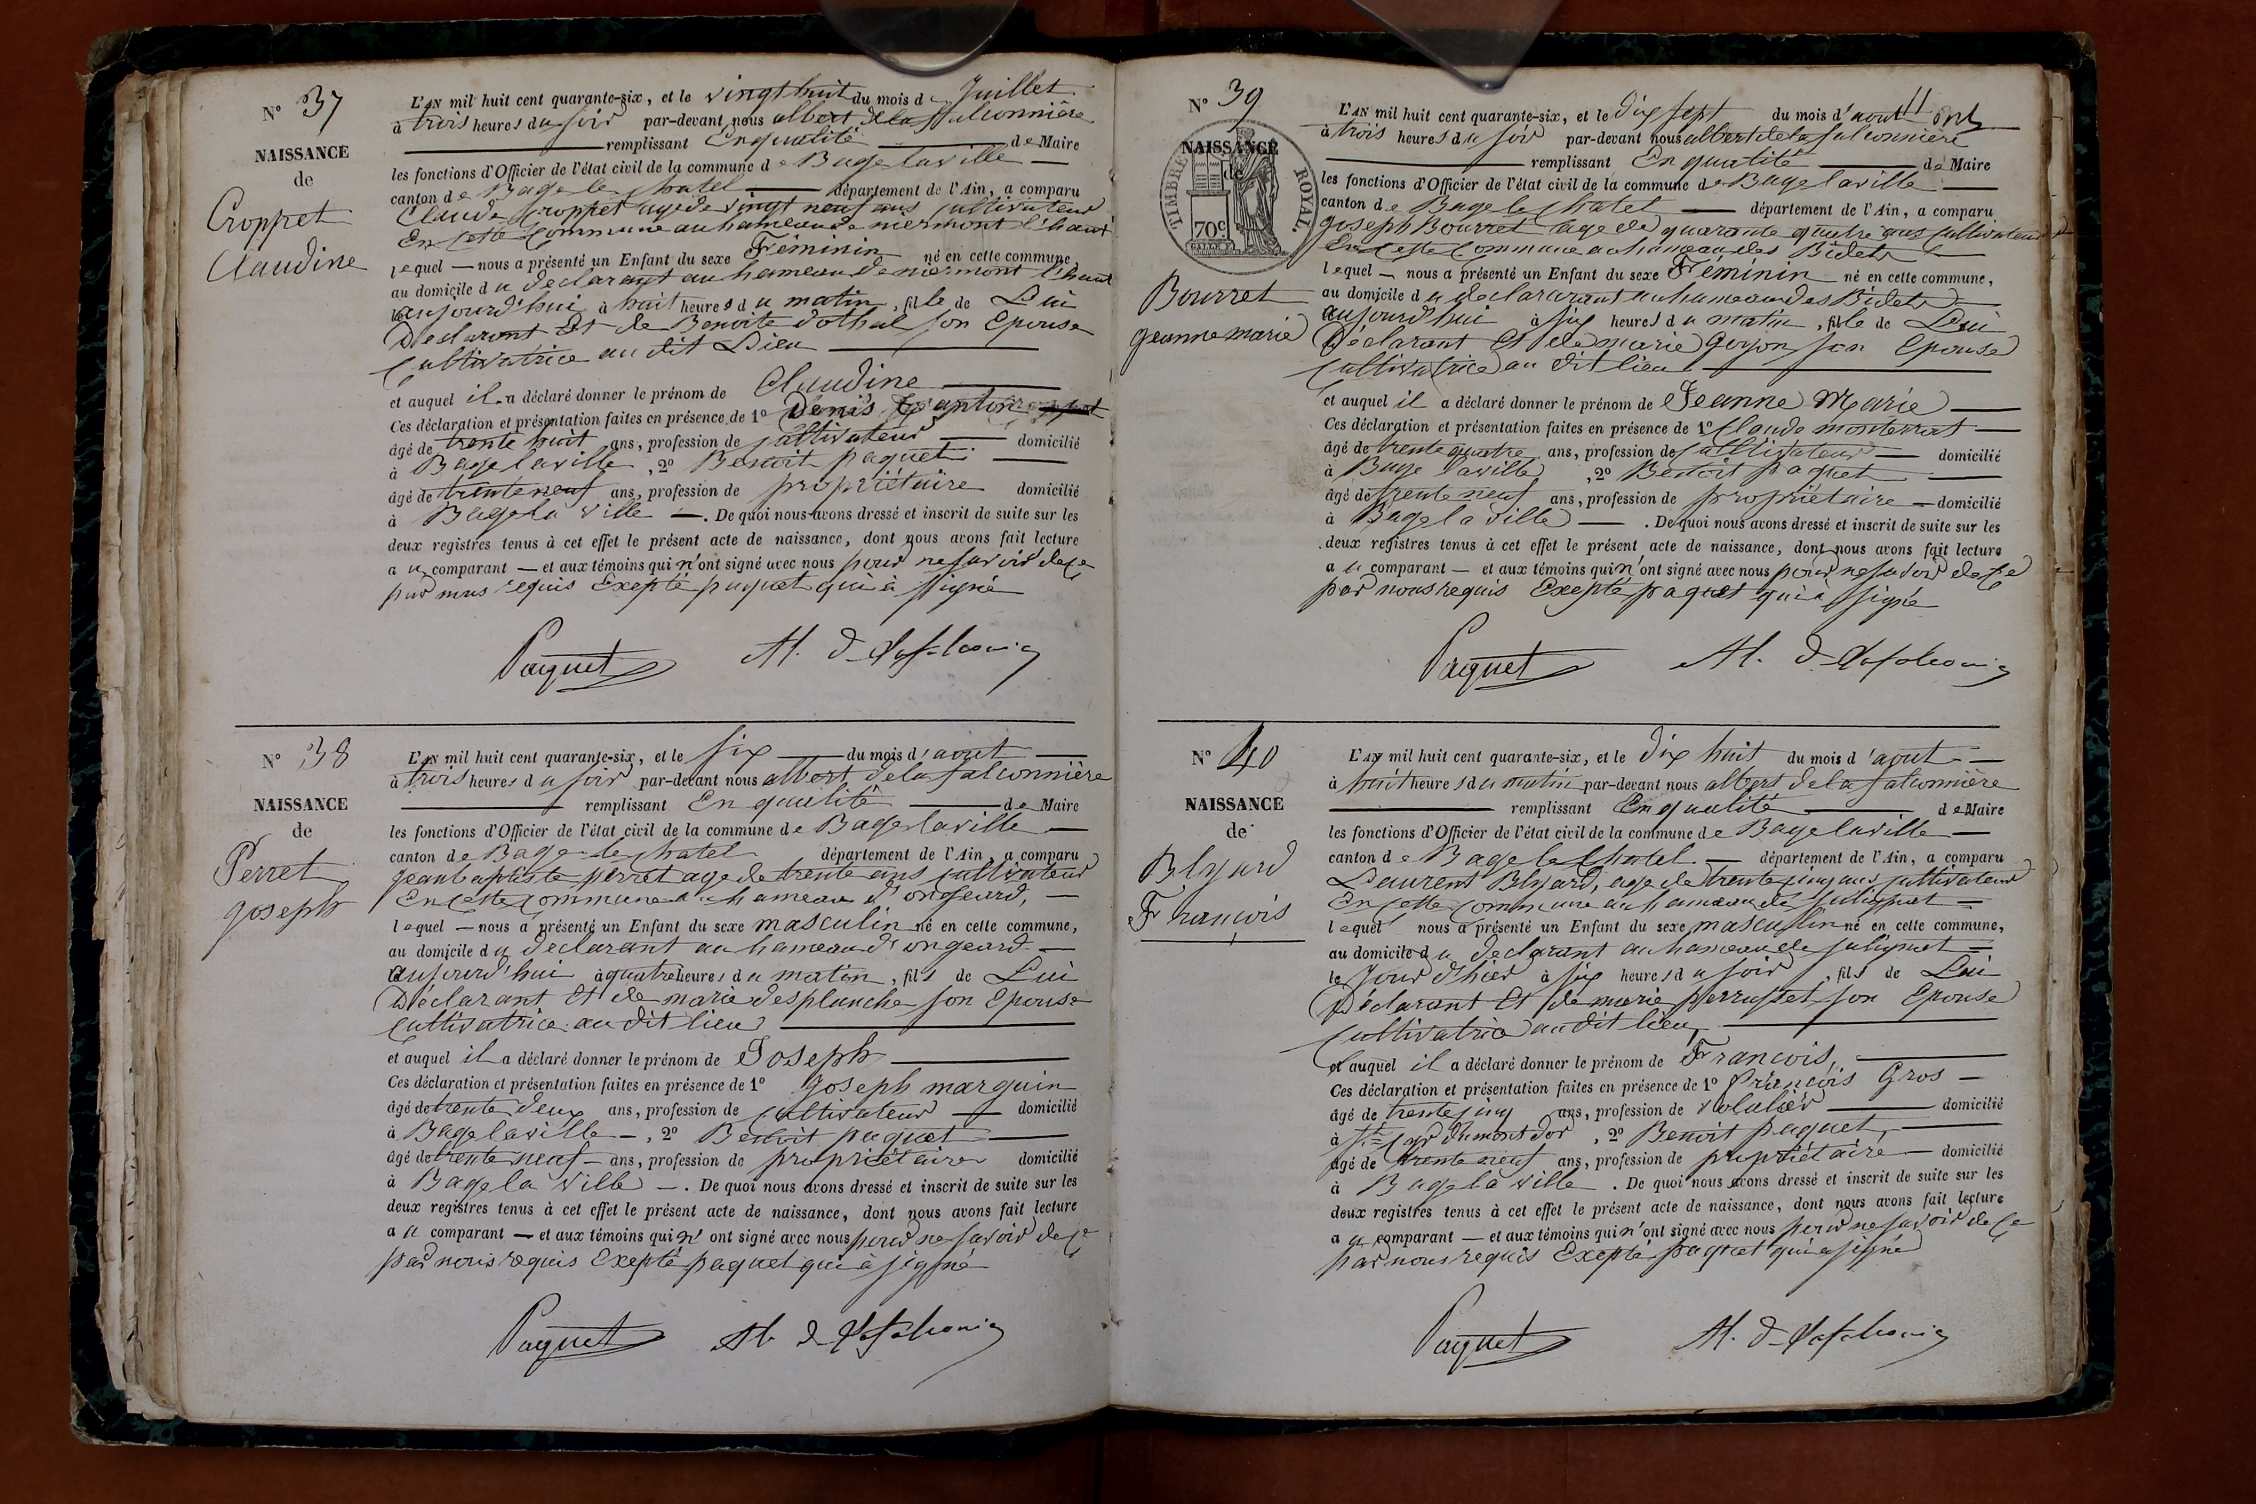 N° 37
NAISSANCE
de
Croppet
Claudine
L'AN mil huit cent quarante-six, et le vingt huit du mois de Juillet
à trois heures du soir par-devant nous albert de la falconnière
remplissant En qualité de Maire
les fonctions d'Officier de l'état civil de la commune de Bage laville
canton de Bage le chatel département de l'Ain, a comparu
Claude Croppet age de vingt neuf ans cultivateur
En cette commune au hameau de niermont l'haut
lequel nous a présenté un Enfant du sexe Féminin né en cette commune,
au domicile du declarant au hameau de niermont l'haut
aujourd'hui à huit heures du matin, fille de Lui
Declarant Et de Benoite dothal son Epouse
cultivatrice au dit Lieu
et auquel il a déclaré donner le prénom de Claudine
Ces déclaration et présentation faites en présence de 1° Denis
âgé de trente huit ans, profession de cultivateur domicilié
à Bage laville, 2° Benoit paquet
âgé de trente neuf ans, profession de propriétaire domicilié
à Bage la ville. De quoi nous avons dressé et inscrit de suite sur les
deux registres tenus à cet effet le présent acte de naissance, dont nous avons fait lecture
au comparant et aux témoins qui n'ont signé avec nous pour ne savoir de ce
par nous requis Exepté paquet qui à signé
Paquet Al. d Lafalconnier
N° 38
NAISSANCE
de
Perret
joseph
L'AN mil huit cent quarante-six, et le six du mois d'aout
à trois heures du soir par-devant nous albert de la falconnière
remplissant En qualité de Maire
les fonctions d'Officier de l'état civil de la commune de Bage laville
canton de Bage le chatel département de l'Ain, a comparu
jean baptiste perret age de trente ans cultivateur
En cette commune au hameau d'ongeard,
lequel nous a présenté un Enfant du sexe masculin né en cette commune,
au domicile du declarant au hameau d'ongeard
aujourd'hui à quatre heures du matin, fils de Lui
Déclarant Et de marie desplanche son Epouse
cultivatrice au dit lieu
et auquel il a déclaré donner le prénom de Joseph
Ces déclaration et présentation faites en présence de 1° joseph marguin
âgé de trente deux ans, profession de cultivateur domicilié
à Bage laville, 2° Benoit paquet
âgé de trente neuf ans, profession de propriétaire domicilié
à Bage la ville. De quoi nous avons dressé et inscrit de suite sur les
deux registres tenus à cet effet le présent acte de naissance, dont nous avons fait lecture
au comparant et aux témoins qui n'ont signé avec nous pour ne savoir de ce
par nous requis Exepté paquet qui à signé
Paquet Al. d Lafalconnier
N° 39
NAISSANCE
de
TIMBRE ROYAL
70c
Bourret
jeanne marie
L'AN mil huit cent quarante-six, et le dix sept du mois d'aout
à trois heures du soir par-devant nous albert de la falconnière
remplissant En qualité de Maire
les fonctions d'Officier de l'état civil de la commune de Bage laville
canton de Bage le chatel département de l'Ain, a comparu
joseph Bourret age de quarante quatre ans cultivateur
En cette commune au hameau des Bidets
lequel nous a présenté un Enfant du sexe Féminin né en cette commune,
au domicile du declararant au hameau des Bidets
aujourd'hui à six heures du matin, fille de Lui
Déclarant Et de marie goyon son Epouse
cultivatrice au dit lieu
et auquel il a déclaré donner le prénom de Jeanne Marie
Ces déclaration et présentation faites en présence de 1° Claude monterrat
âgé de trente quatre ans, profession de cultivateur domicilié
à Bage laville, 2° Benoit paquet
âgé de trente neuf ans, profession de propriétaire domicilié
à Bage la ville. De quoi nous avons dressé et inscrit de suite sur les
deux registres tenus à cet effet le présent acte de naissance, dont nous avons fait lecture
au comparant et aux témoins qui n'ont signé avec nous pour ne savoir de ce
par nous requis Exepté paquet qui a signé
Paquet Al. d Lafalconnier
N° 40
NAISSANCE
de
Blyard
François
L'AN mil huit cent quarante-six, et le dix huit du mois d'aout
à huit heures du matin par-devant nous albert de la falconnière
remplissant En qualité de Maire
les fonctions d'Officier de l'état civil de la commune de Bage laville
canton de Bage le chatel département de l'Ain, a comparu
Laurent Blyard, age de trente cinq ans cultivateur
En cette commune au hameau de
lequel nous a présenté un Enfant du sexe masculin né en cette commune,
au domicile du declarant au hameau de
le jour d'hier à six heures du soir, fils de Lui
Déclarant Et de marie perrusset son Epouse
cultivatrice au dit lieu
et auquel il a déclaré donner le prénom de François,
Ces déclaration et présentation faites en présence de 1° François Gros
âgé de trente cinq ans, profession de domicilié
à St Cyr du mont dor, 2° Benoit paquet,
âgé de trente neuf ans, profession de propriétaire domicilié
à Bage la ville. De quoi nous avons dressé et inscrit de suite sur les
deux registres tenus à cet effet le présent acte de naissance, dont nous avons fait lecture
au comparant et aux témoins qui n'ont signé avec nous pour ne savoir de ce
par nous requis Exepté paquet qui a signé
Paquet Al. d Lafalconnier